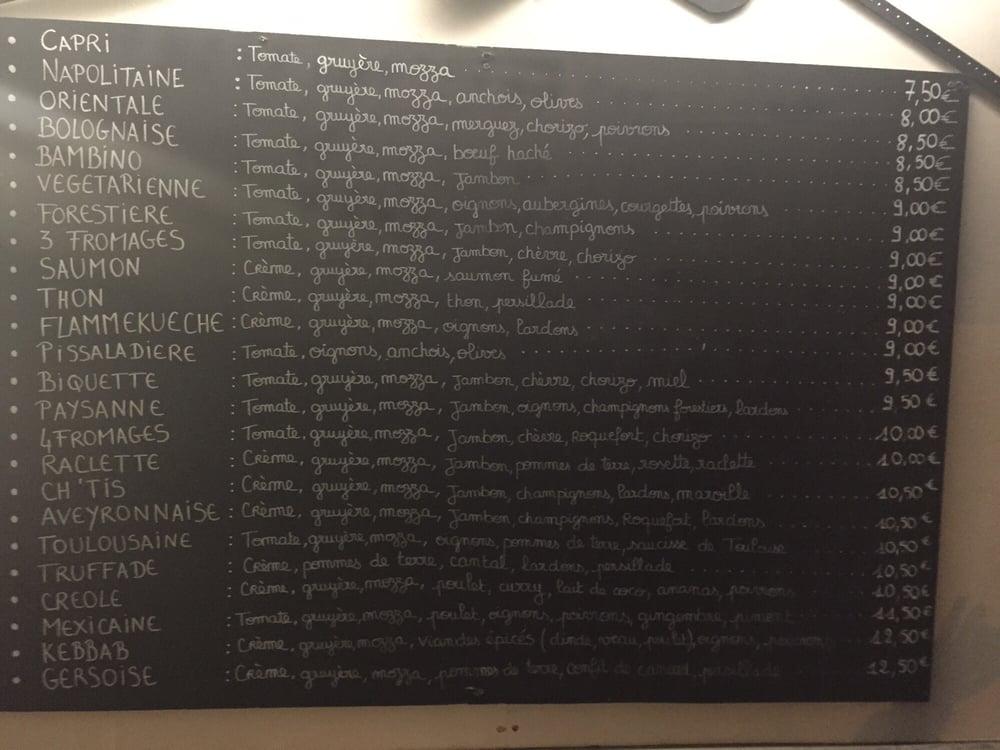 • CAPRI : Tomate, gruyère, mozza 7,50€
• NAPOLITAINE : Tomate, gruyère, mozza, anchois, olives 8,00€
• ORIENTALE : Tomate, gruyère, mozza, merguez, chorizo, poivrons 8,50€
• BOLOGNAISE : Tomate, gruyère, mozza, boeuf haché 8,50€
• BAMBINO : Tomate, gruyère, mozza, Jambon 8,50€
• VEGETARIENNE : Tomate, gruyère, mozza, oignons, aubergines, courgettes, poivrons 9,00€
• FORESTIERE : Tomate, gruyère, mozza, Jambon, champignons 9,00€
• 3 FROMAGES : Tomate, gruyère, mozza, Jambon, chèvre, chorizo 9,00€
• SAUMON : Crème, gruyère, mozza, saumon fumé 9,00€
• THON : Crème, gruyère, mozza, thon, persillade 9,00€
• FLAMMEKUECHE : Crème, gruyère, mozza, oignons, lardons 9,00€
• PISSALADIERE : Tomate, oignons, anchois, olives 9,00€
• BIQUETTE : Tomate, gruyère, mozza, Jambon, chèvre, chorizo, miel 9,50€
• PAYSANNE : Tomate, gruyère, mozza, Jambon, oignons, champignons forestiers, lardons 9,50€
• 4 FROMAGES : Tomate, gruyère, mozza, Jambon, chèvre, Roquefort, chorizo 10,00€
• RACLETTE : Crème, gruyère, mozza, Jambon, pommes de terre, rosette, raclette 10,00€
• CH'TIS : Crème, gruyère, mozza, Jambon, champignons, lardons, maroille 10,50€
• AVEYRONNAISE : Crème, gruyère, mozza, Jambon, champignons, Roquefort, lardons 10,50€
• TOULOUSAINE : Tomate, gruyère, mozza, oignons, pommes de terre, saucisse de Toulouse 10,50€
• TRUFFADE : Crème, pommes de terre, cantal, lardons, persillade 10,50€
• CREOLE : Crème, gruyère, mozza, poulet, curry, lait de coco, ananas, poivrons 10,50€
• MEXICAINE : Tomate, gruyère, mozza, poulet, oignons, poivrons, gingembre, piment 11,50€
• KEBBAB : Crème, gruyère, mozza, viandes épicés (dinde, veau, poulet), oignons, poivrons 12,50€
• GERSOISE : Crème, gruyère, mozza, pommes de terre, confit de canard, persillade 12,50€